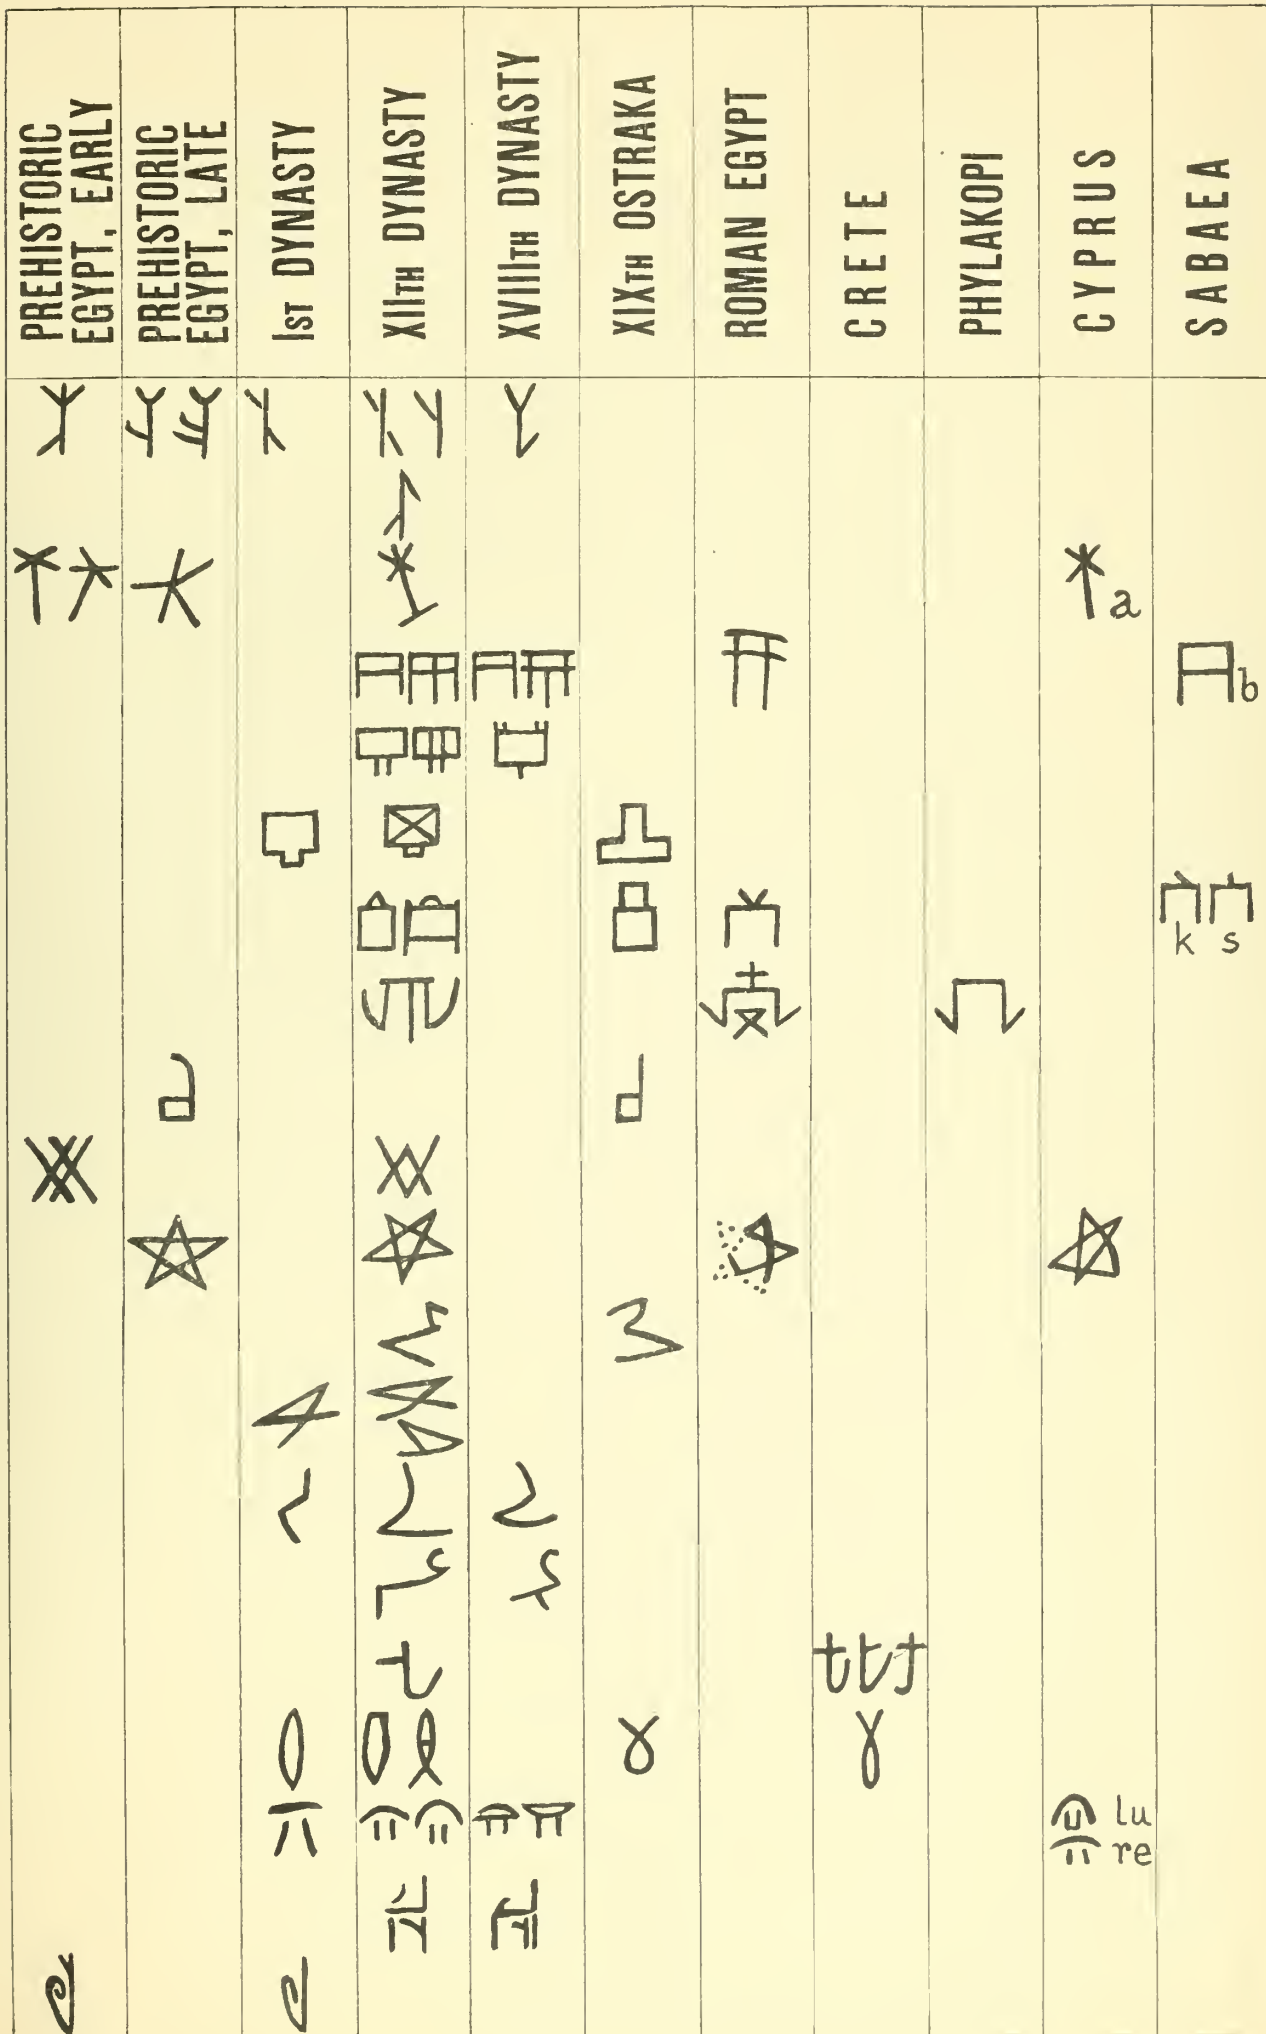 PREHISTORIC
EGYPT, EARLY
PREHISTORIC
EGYPT, LATE
IST DYNASTY
XIITH DYNASTY
XVIIITH DYNASTY
XIXTH OSTRAKA
ROMAN EGYPT
CRETE
PHYLAKOPI
CYPRUS
SABAEA
a
b
k s
lu
re